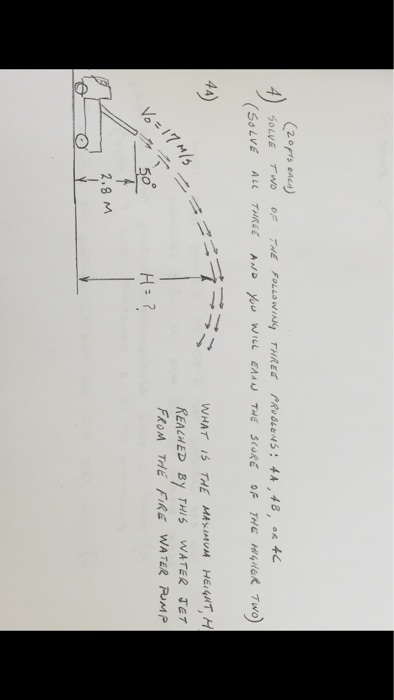 (20 PTS EACH)
4) SOLVE TWO OF THE FOLLOWING THREE PROBLEMS: 4A, 4B, OR 4C
(SOLVE ALL THREE AND YOU WILL EARN THE SCORE OF THE HIGHER TWO)
4A)
V₀ = 17 M/S
50°
2.8 M
H = ?
WHAT IS THE MAXIMUM HEIGHT, H
REACHED BY THIS WATER JET
FROM THE FIRE WATER PUMP